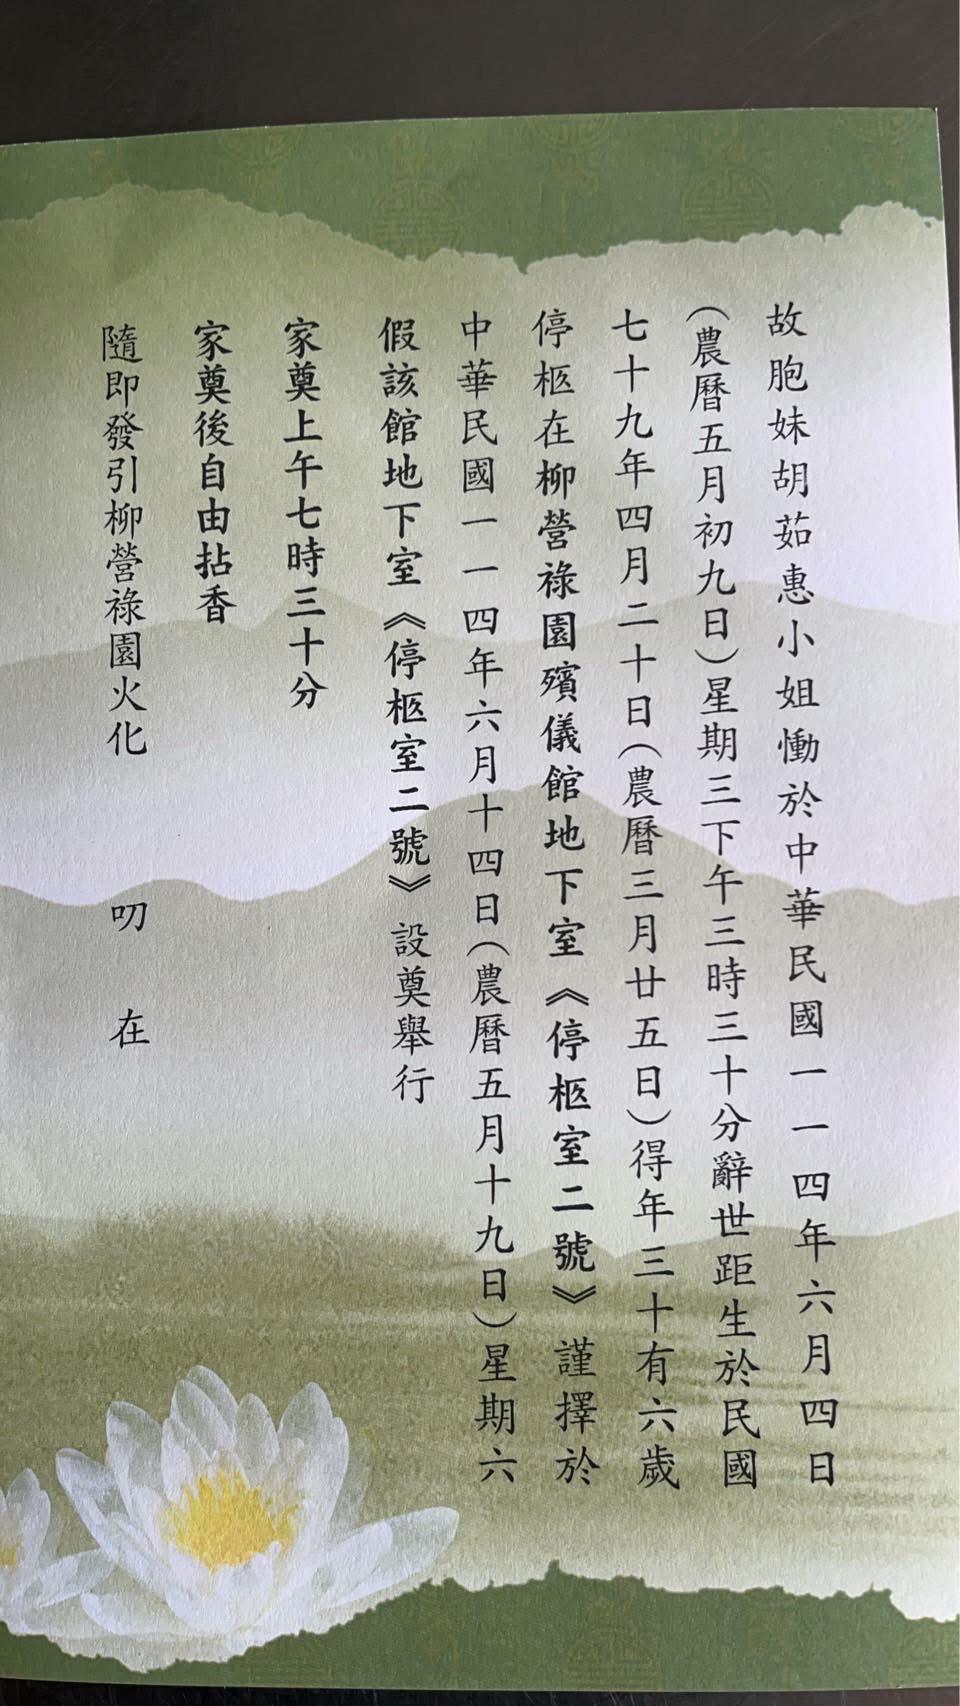 故胞妹胡茹惠小姐慟於中華民國一一四年六月四日
(農曆五月初九日)星期三下午三時三十分辭世距生於民國
七十九年四月二十日(農曆三月廿五日)得年三十有六歲
停柩在柳營祿園殯儀館地下室《停柩室二號》謹擇於
中華民國一一四年六月十四日(農曆五月十九日)星期六
假該館地下室《停柩室二號》設奠舉行
家奠上午七時三十分
家奠後自由拈香
隨即發引柳營祿園火化 叨在